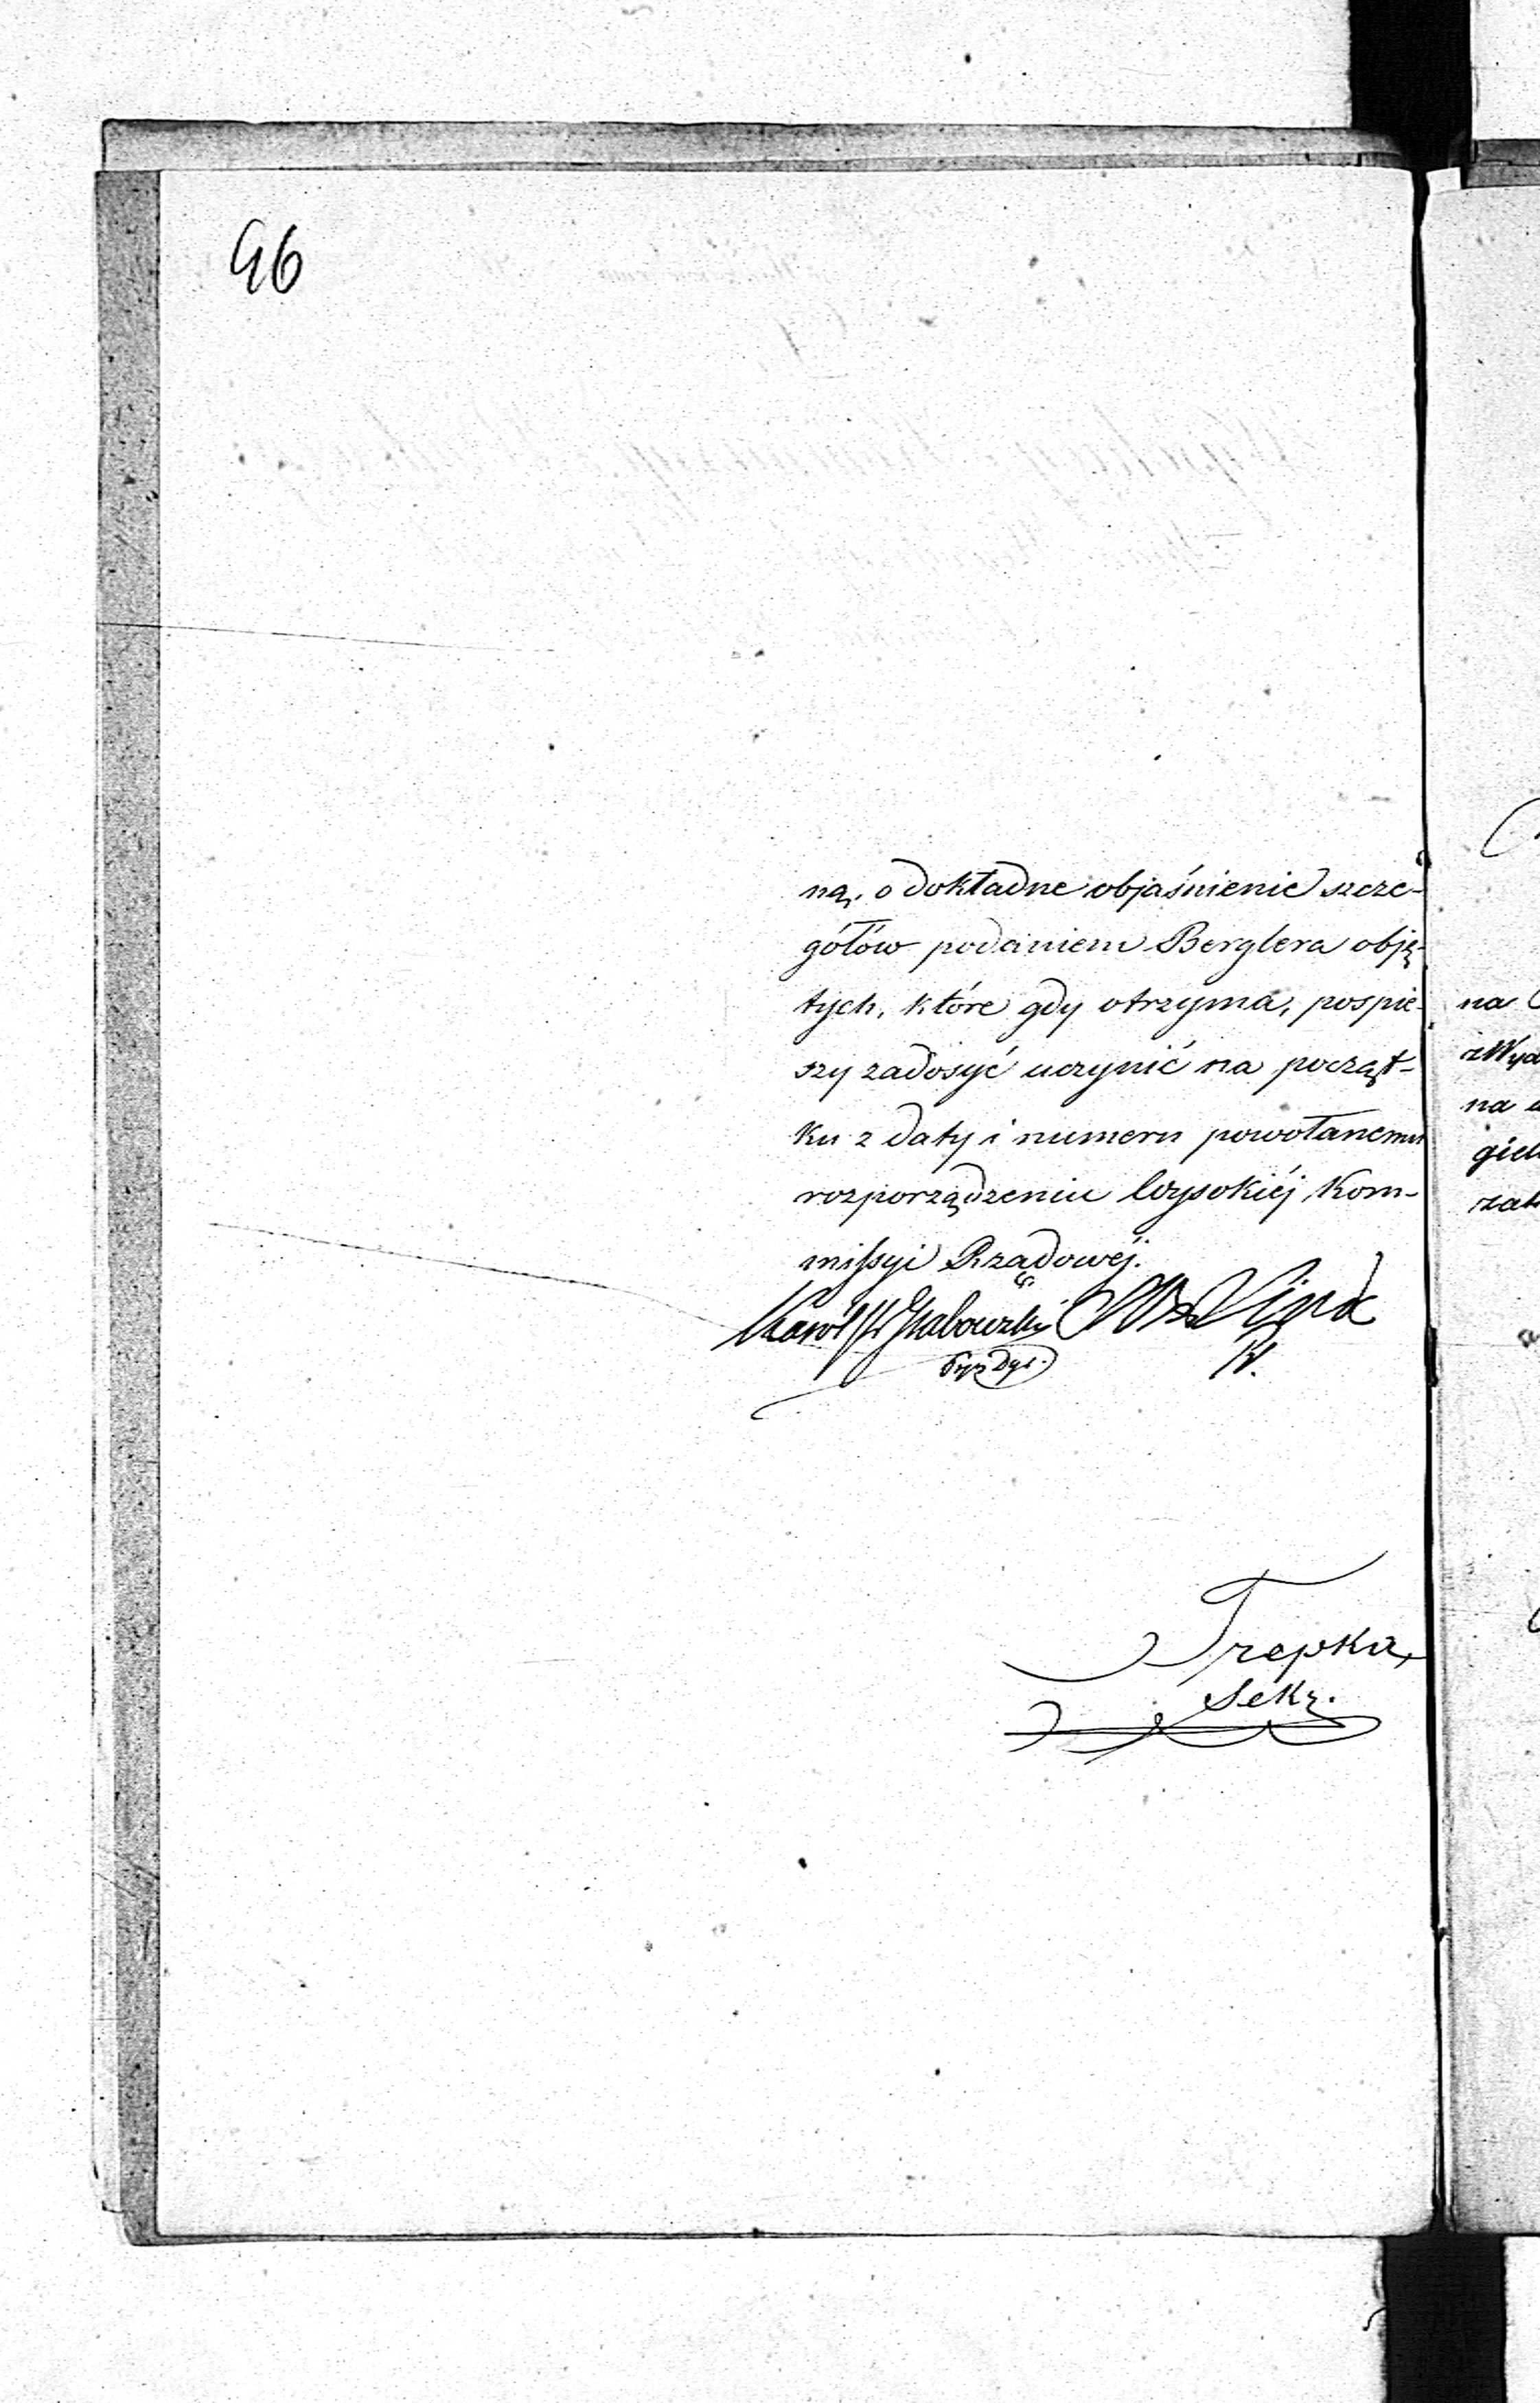 46
ną, o dokładne objaśnienie szcze-
gółów podaniem Berglera obję-
tych, które gdy otrzyma, pospie-
szy zadosyć uczynić na począt-
ku z daty i numeru powołanemu
rozporządzeniu Wysokiéj Kom-
missyi Rządowéj.
Karól Grabowski
Trepka,
Sekr.
na
z Wyd
na
giel
zat